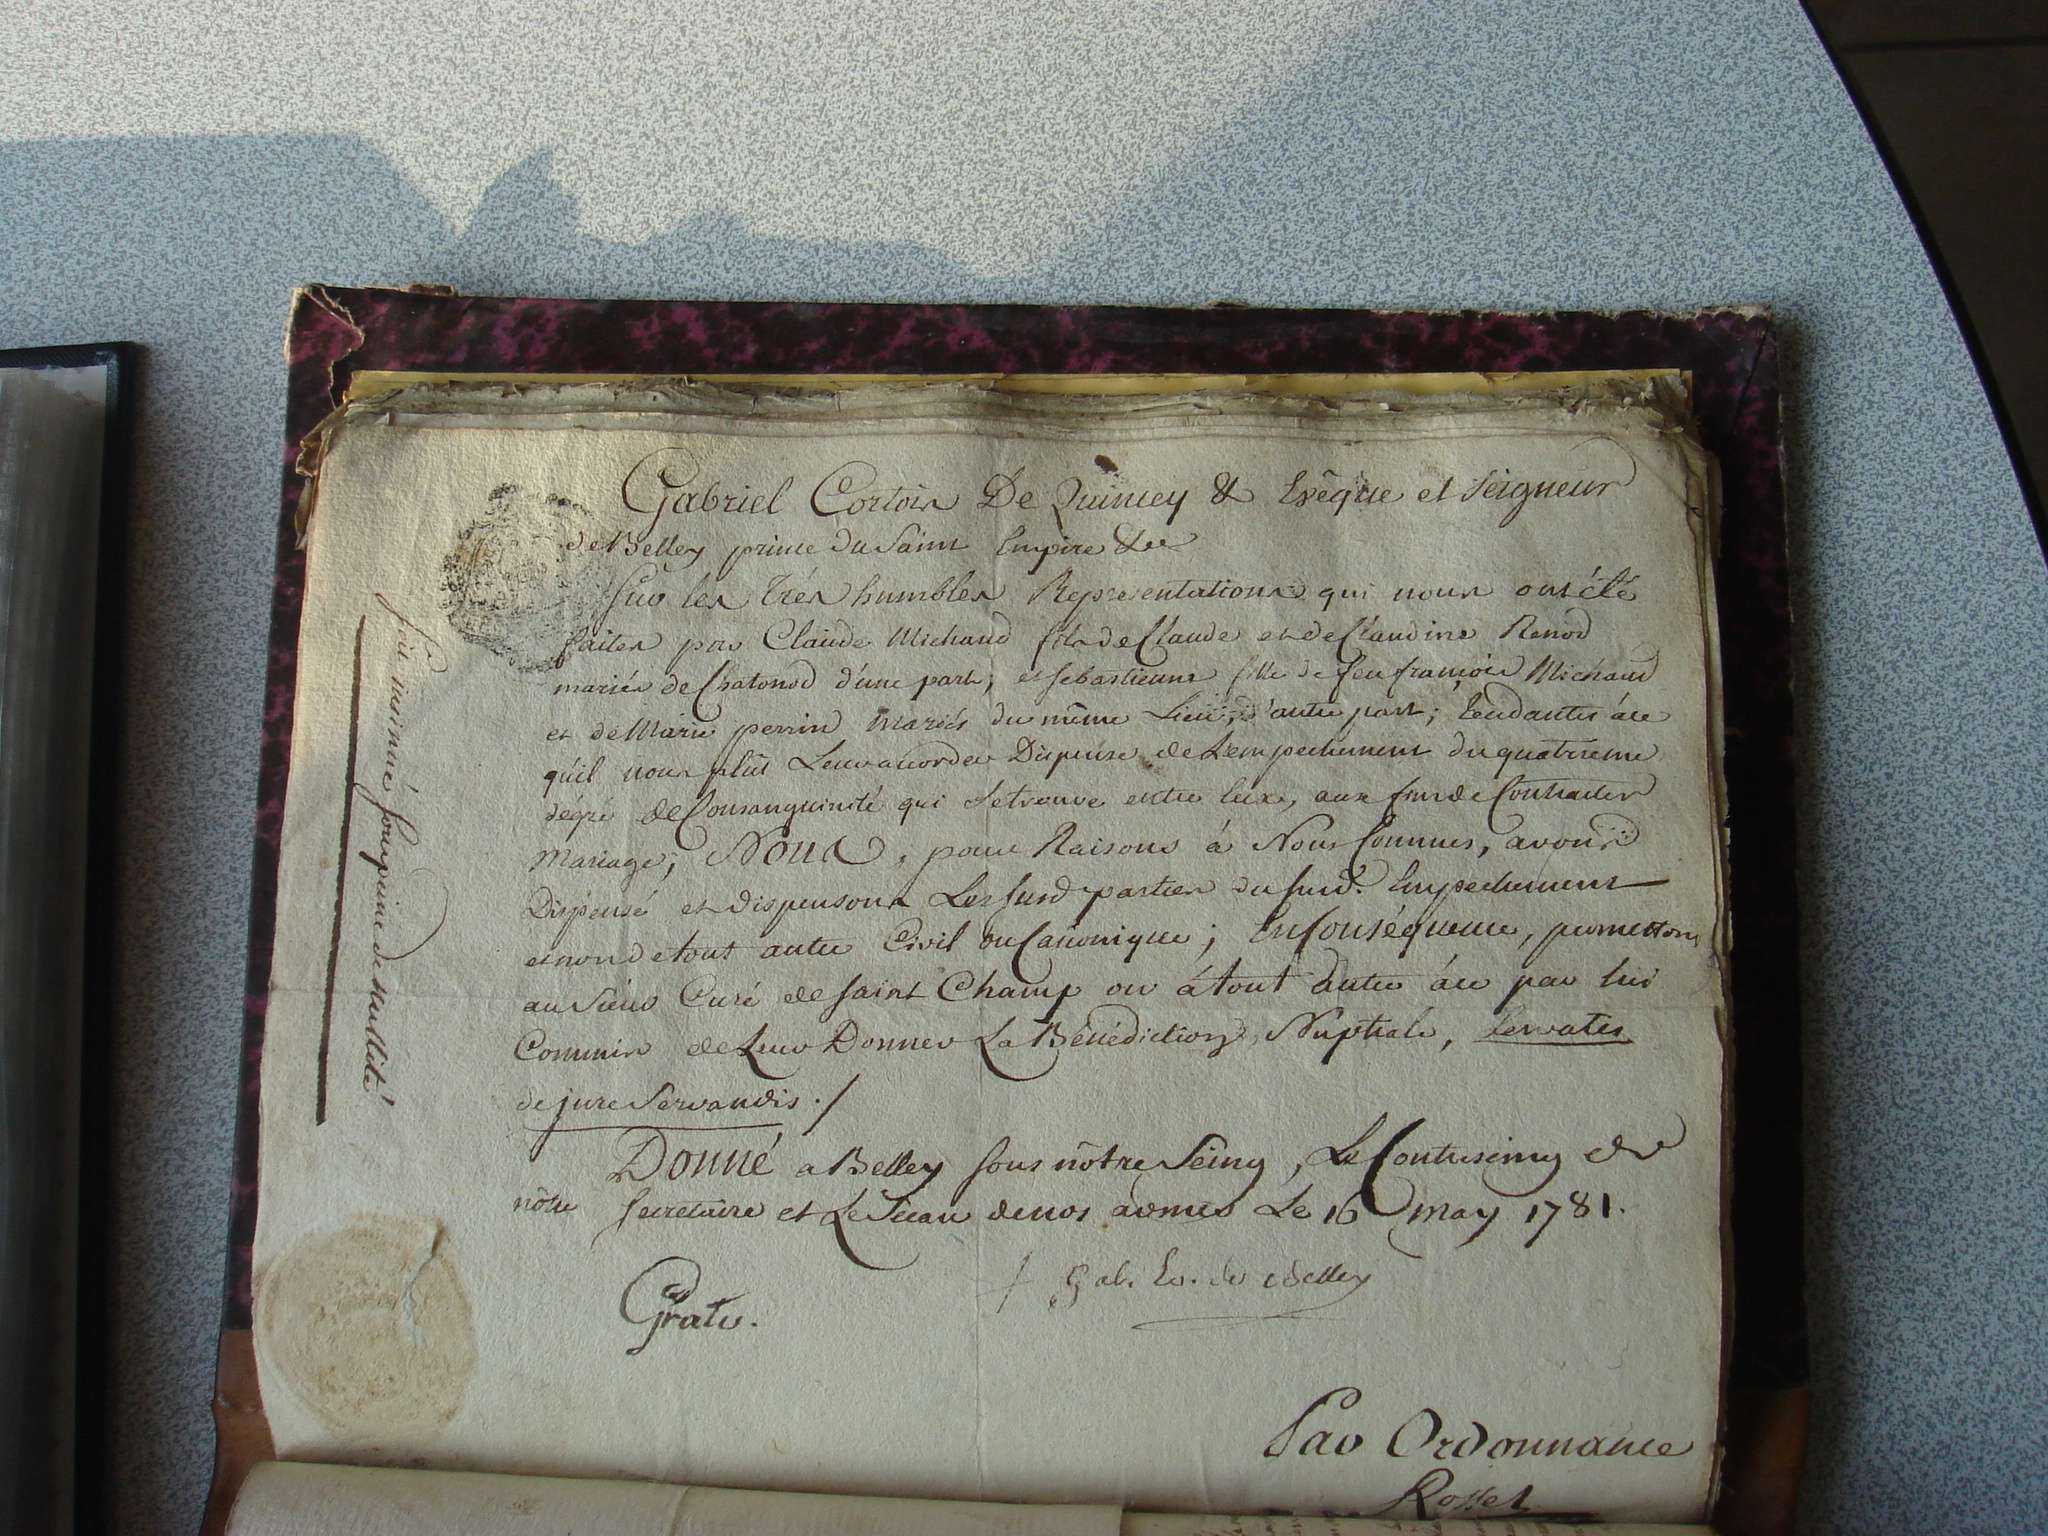 Gabriel Cortois De Quincey & Evêque et Seigneur
de Belley prince du Saint Empire &c
Sur les très humbles Representations qui nous ont été
faites par Claude Michaud fils de Claude et de Claudine Renod
mariés de Chatonod d'une part, et Sebastienne fille de feu françois Michaud
et de Marie perrin mariés du même Lieu, d'autre part; tendantes à ce
qu'il nous plût Leur accorder Dispense de L'empechement du quatrieme
dégré de Consanguinité qui se trouve entre Eux, aux fins de Contracter
Mariage; Nous, pour Raisons à Nous Connues, avons
Dispensé et dispensons Les susd. parties du susd. Empechement
et non de tout autre Civil ou Canonique; En Conséquence, permettons
au Sieur Curé de Saint Champ ou à tout autre à ce par lui
Commis de Leur Donner La Bénédiction Nuptiale, Servatis
de jure Servandis./
Donné a Belley sous nôtre Seing, Le Contreseing de
nôtre Secretaire et Le Sceau de nos armes Le 16 may 1781.
+ Gab. Ev. de Belley
Gratis.
Par Ordonnance
Rosset
sera insinué sous peine de Nullité